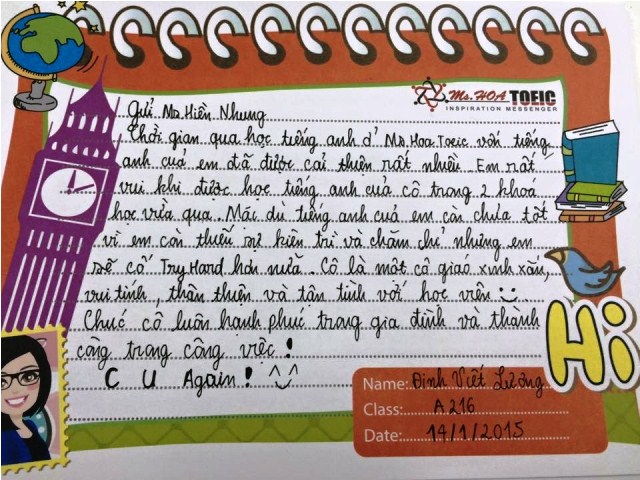 Ms. HOA TOEIC
INSPIRATION MESSENGER
Gửi Ms Hiền Nhung
Thời gian qua học tiếng anh ở Ms Hoa Toeic vốn tiếng
anh của em đã được cải thiện rất nhiều. Em rất
vui khi được học tiếng anh của cô trong 2 khoá
học vừa qua. Mặc dù tiếng anh của em còn chưa tốt
vì em còn thiếu sự kiên trì và chăm chỉ nhưng em
sẽ cố Try Hard hơn nữa. Cô là một cô giáo xinh xắn,
vui tính, thân thiện và tận tình với học viên
Chúc cô luôn hạnh phúc trong gia đình và thành
công trong công việc!
C U Again! ^^
Hi
Name: Đinh Viết Lương
Class: A216
Date: 14/1/2015